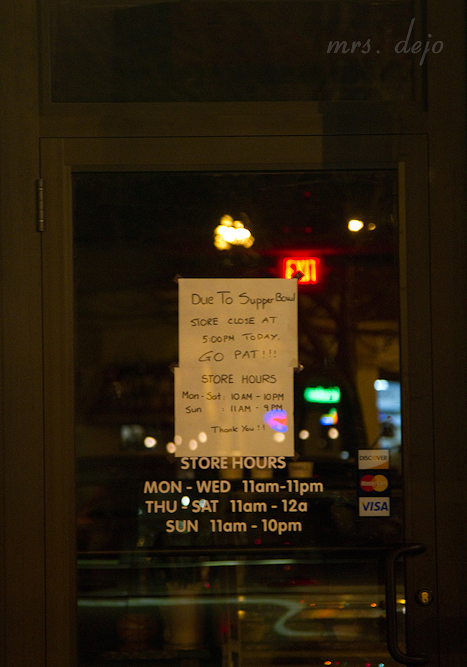 mrs. dejo
EXIT
DUE TO SUPPER BOWL
STORE CLOSE AT
5:00PM TODAY.
GO PAT!!!
STORE HOURS
Mon-Sat: 10AM - 10PM
Sun : 11AM - 9PM
Thank You!!
STORE HOURS
MON - WED 11am-11pm
THU - SAT 11am - 12a
SUN 11am - 10pm
DISCOVER
MasterCard
VISA